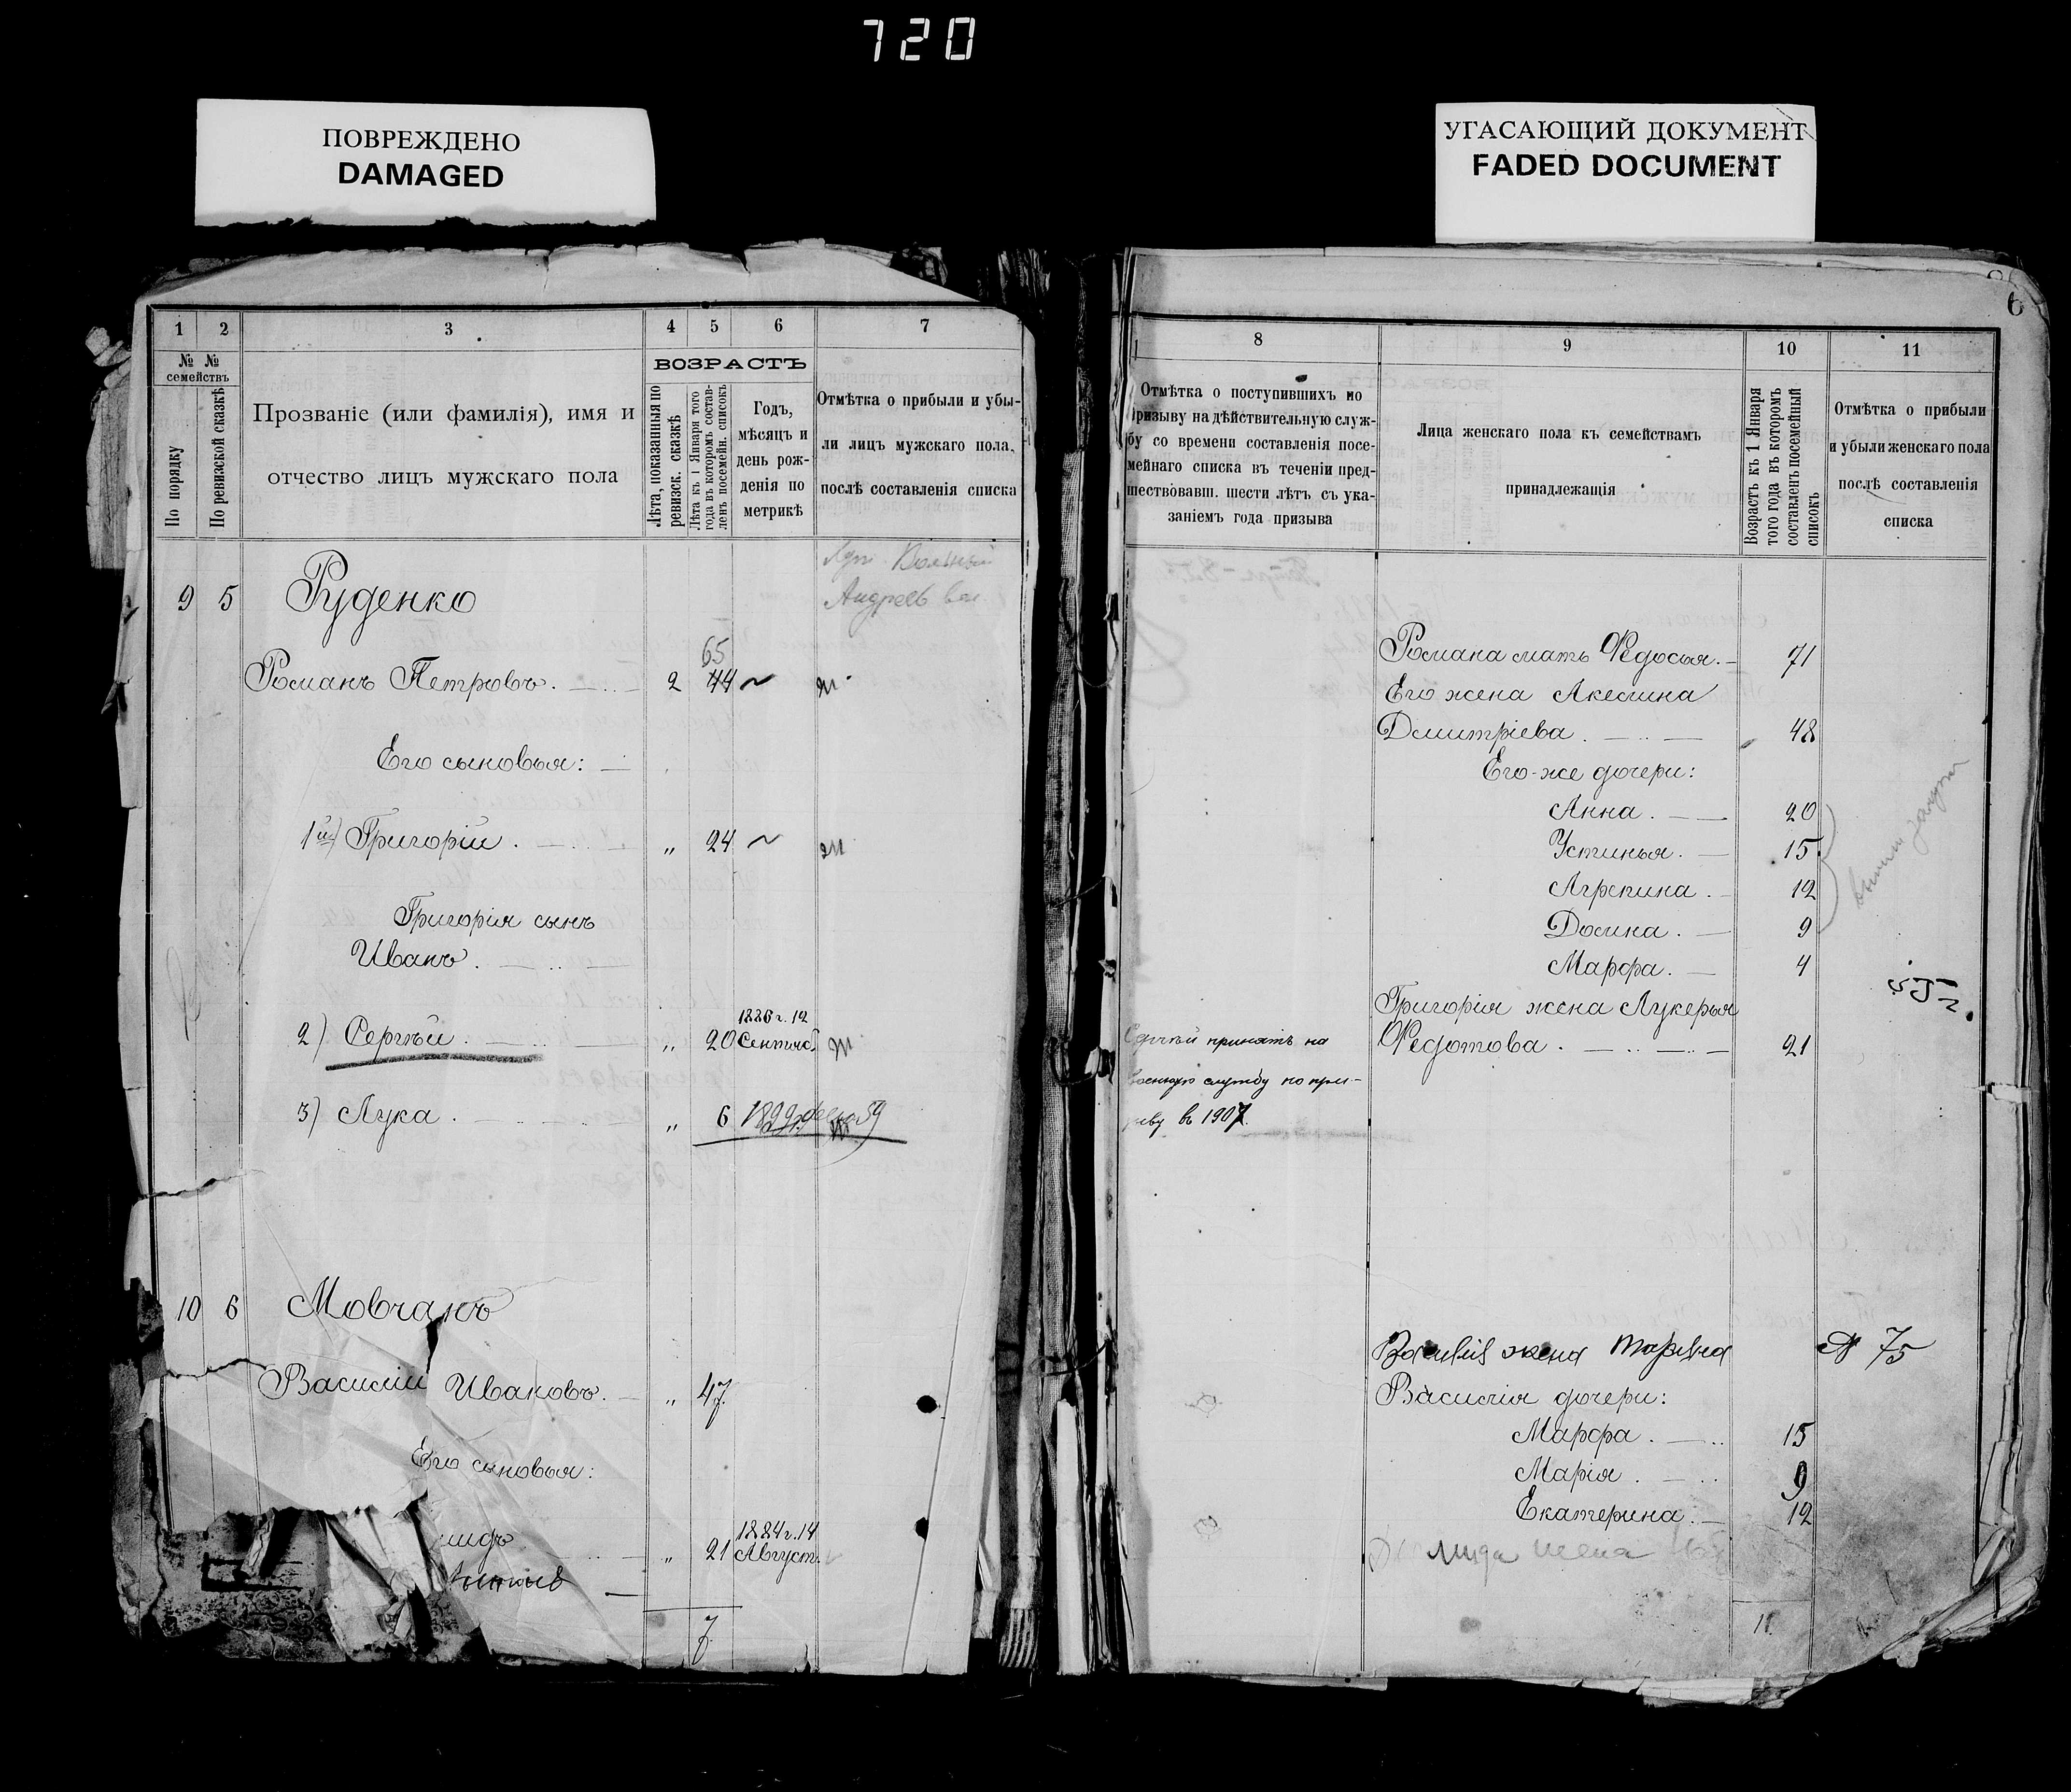 720
ПОВРЕЖДЕНО
DAMAGED
УГАСАЮЩИЙ ДОКУМЕНТ
FADED DOCUMENT
1 2 3 4 5 6 7
№ № семействъ
По порядку
По ревизской сказкѣ
Прозваніе (или фамилія), имя и
отчество лицъ мужскаго пола
ВОЗРАСТЪ
Лѣта, показанныя по
ревизск. сказкѣ
Лѣта къ 1 Января того
года въ которомъ состав-
ленъ посемейн. списокъ
Годъ,
мѣсяцъ и
день рож-
денія по
метрикѣ
Отмѣтка о прибыли и убы-
ли лицъ мужскаго пола,
послѣ составленія списка
Вольный
Андреев
9 5 Руденко
65
Романъ Петровъ. 2 44
Его сыновья:
1й) Григорій. „ 24
Григорія сынъ
Иванъ.
1886 г. 12
2) Сергѣй. „ 20 Сентяб.
3) Лука. „ 6
10 6 Мовчанъ
Василій Ивановъ. „ 47.
Его сыновья:
1884 г. 14
мидъ „ 21 Август.
7
6
8 9 10 11
Отмѣтка о поступившихъ по
призыву на дѣйствительную служ-
бу со времени составленія посе-
мейнаго списка въ теченіи пред-
шествовавш. шести лѣтъ съ ука-
заніемъ года призыва
Лица женскаго пола къ семействамъ
принадлежащія
Возрастъ къ 1 Января
того года въ которомъ
составленъ посемейный
списокъ
Отмѣтка о прибыли
и убыли женскаго пола
послѣ составленія
списка
Романа мать Федосья. 71
Его жена Акелина
Дмитріева. 48
Его-же дочери:
Анна. 20
Устинья. 15
Агрепина. 12
Домна. 9
Марфа. 4
замуж
Григорія жена Лукерья
Федотова. 21
Сергѣй принятъ на
военную службу по при-
зыву въ 1907.
Василія жена Марина № 75
Василія дочери:
Марфа. 15
Марія. 9
Екатерина. 12
мида жена
11.